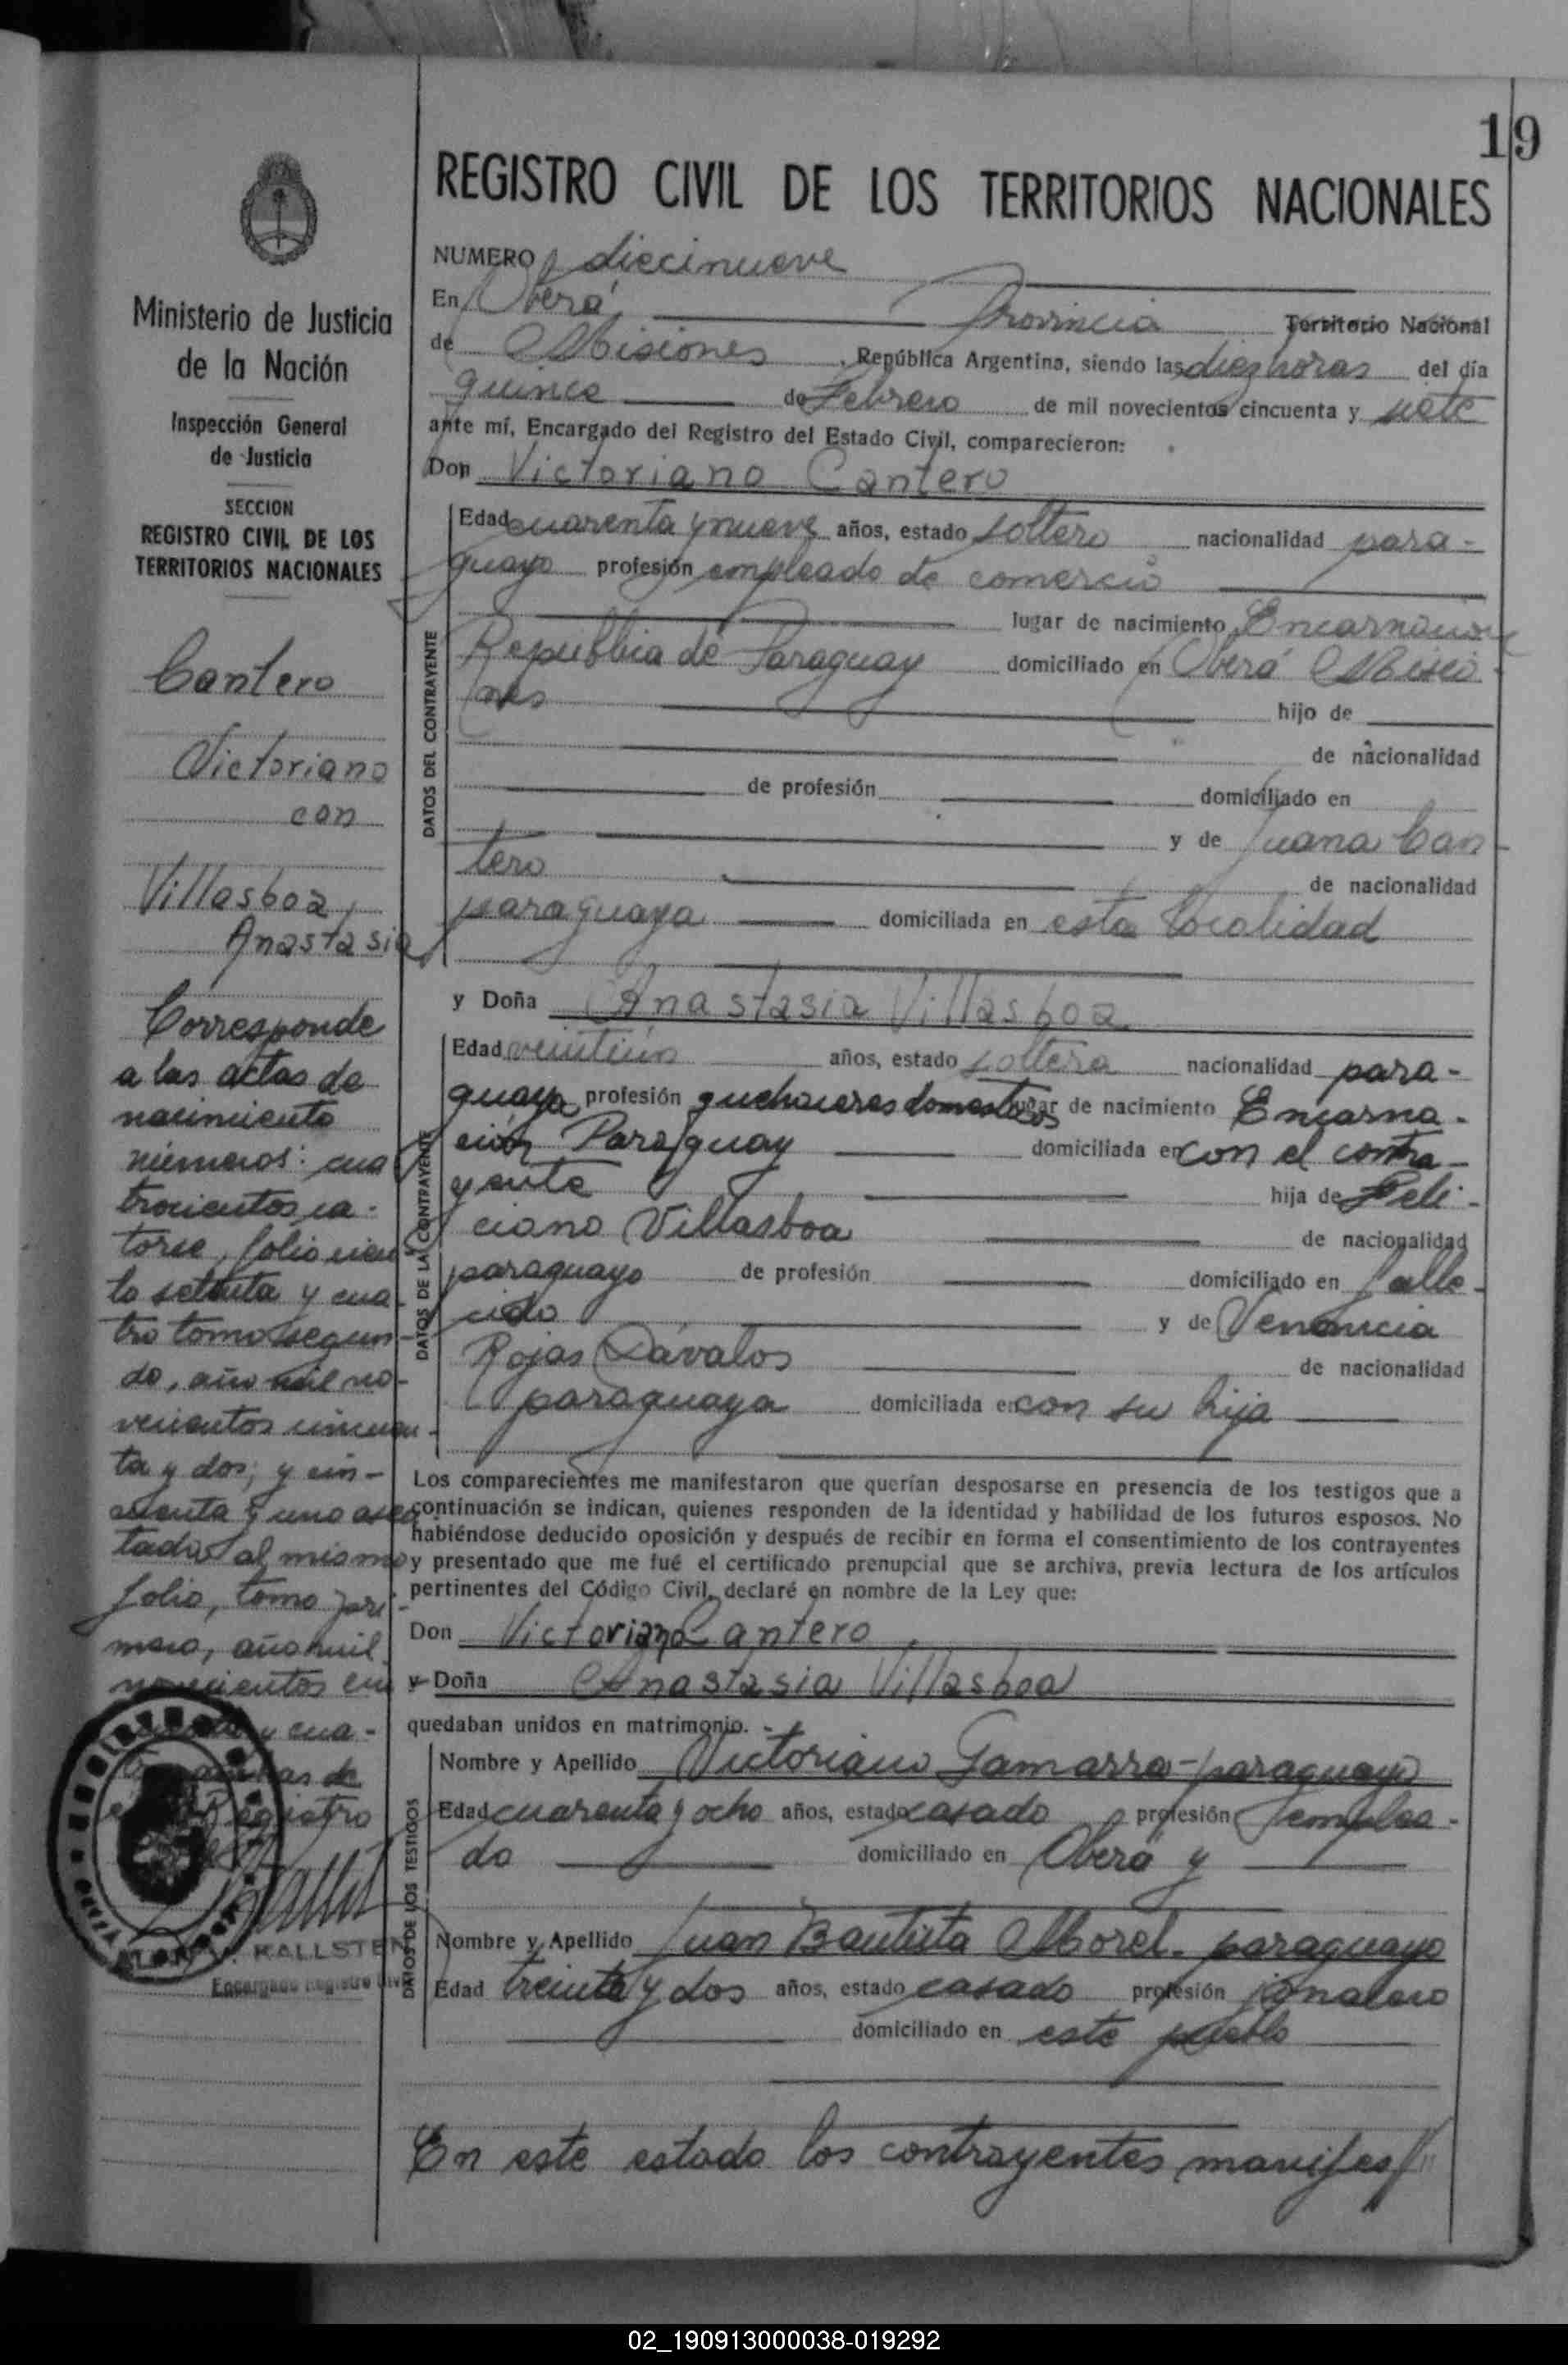 19
REGISTRO CIVIL DE LOS TERRITORIOS NACIONALES
NUMERO diecinueve
En Oberá Provincia Territorio Nacional
de Misiones, República Argentina, siendo las diez horas del día
quince de Febrero de mil novecientos cincuenta y siete
ante mí, Encargado del Registro del Estado Civil, comparecieron:
Don Victoriano Cantero
DATOS DEL CONTRAYENTE
Edad cuarenta y nueve años, estado soltero nacionalidad para-
guayo profesión empleado de comercio
lugar de nacimiento Encarnación
República de Paraguay domiciliado en Oberá Misio-
nes hijo de
de nacionalidad
de profesión domiciliado en
y de Juana Can-
tero de nacionalidad
paraguaya domiciliada en esta localidad
y Doña Anastasia Villasboa
DATOS DE LA CONTRAYENTE
Edad veintiún años, estado soltera nacionalidad para-
guaya profesión quehaceres domesticos lugar de nacimiento Encarna-
ción Paraguay domiciliada en con el contra-
yente hija de Feli-
ciano Villasboa de nacionalidad
paraguayo de profesión domiciliado en falle-
cido y de Venancia
Rojas Dávalos de nacionalidad
paraguaya domiciliada en con su hija
Los comparecientes me manifestaron que querían desposarse en presencia de los testigos que a
continuación se indican, quienes responden de la identidad y habilidad de los futuros esposos. No
habiéndose deducido oposición y después de recibir en forma el consentimiento de los contrayentes
y presentado que me fué el certificado prenupcial que se archiva, previa lectura de los artículos
pertinentes del Código Civil, declaré en nombre de la Ley que:
Don Victoriano Cantero
y Doña Anastasia Villasboa
quedaban unidos en matrimonio.
DATOS DE LOS TESTIGOS
Nombre y Apellido Victoriano Gamarra - paraguayo
Edad cuarenta y ocho años, estado casado profesión emplea-
do domiciliado en Oberá y
Nombre y Apellido Juan Bautista Morel - paraguayo
Edad treinta y dos años, estado casado profesión jornalero
domiciliado en este pueblo
En este estado los contrayentes manifes//
Ministerio de Justicia
de la Nación
Inspección General
de Justicia
SECCION
REGISTRO CIVIL DE LOS
TERRITORIOS NACIONALES
Cantero
Victoriano
con
Villasboa,
Anastasia
Corresponde
a las actas de
nacimiento
números: cua
trocientos ca-
torce, folio cien
to setenta y cua-
tro tomo segun-
do, año mil no-
vecientos cincuen-
ta y dos; y cin-
cuenta y uno
al mismo
folio, tomo pri-
mero, año mil
novecientos cin
y cua-
de
Registro
KALLSTEN
Encargado Registro Civil
02_190913000038-019292